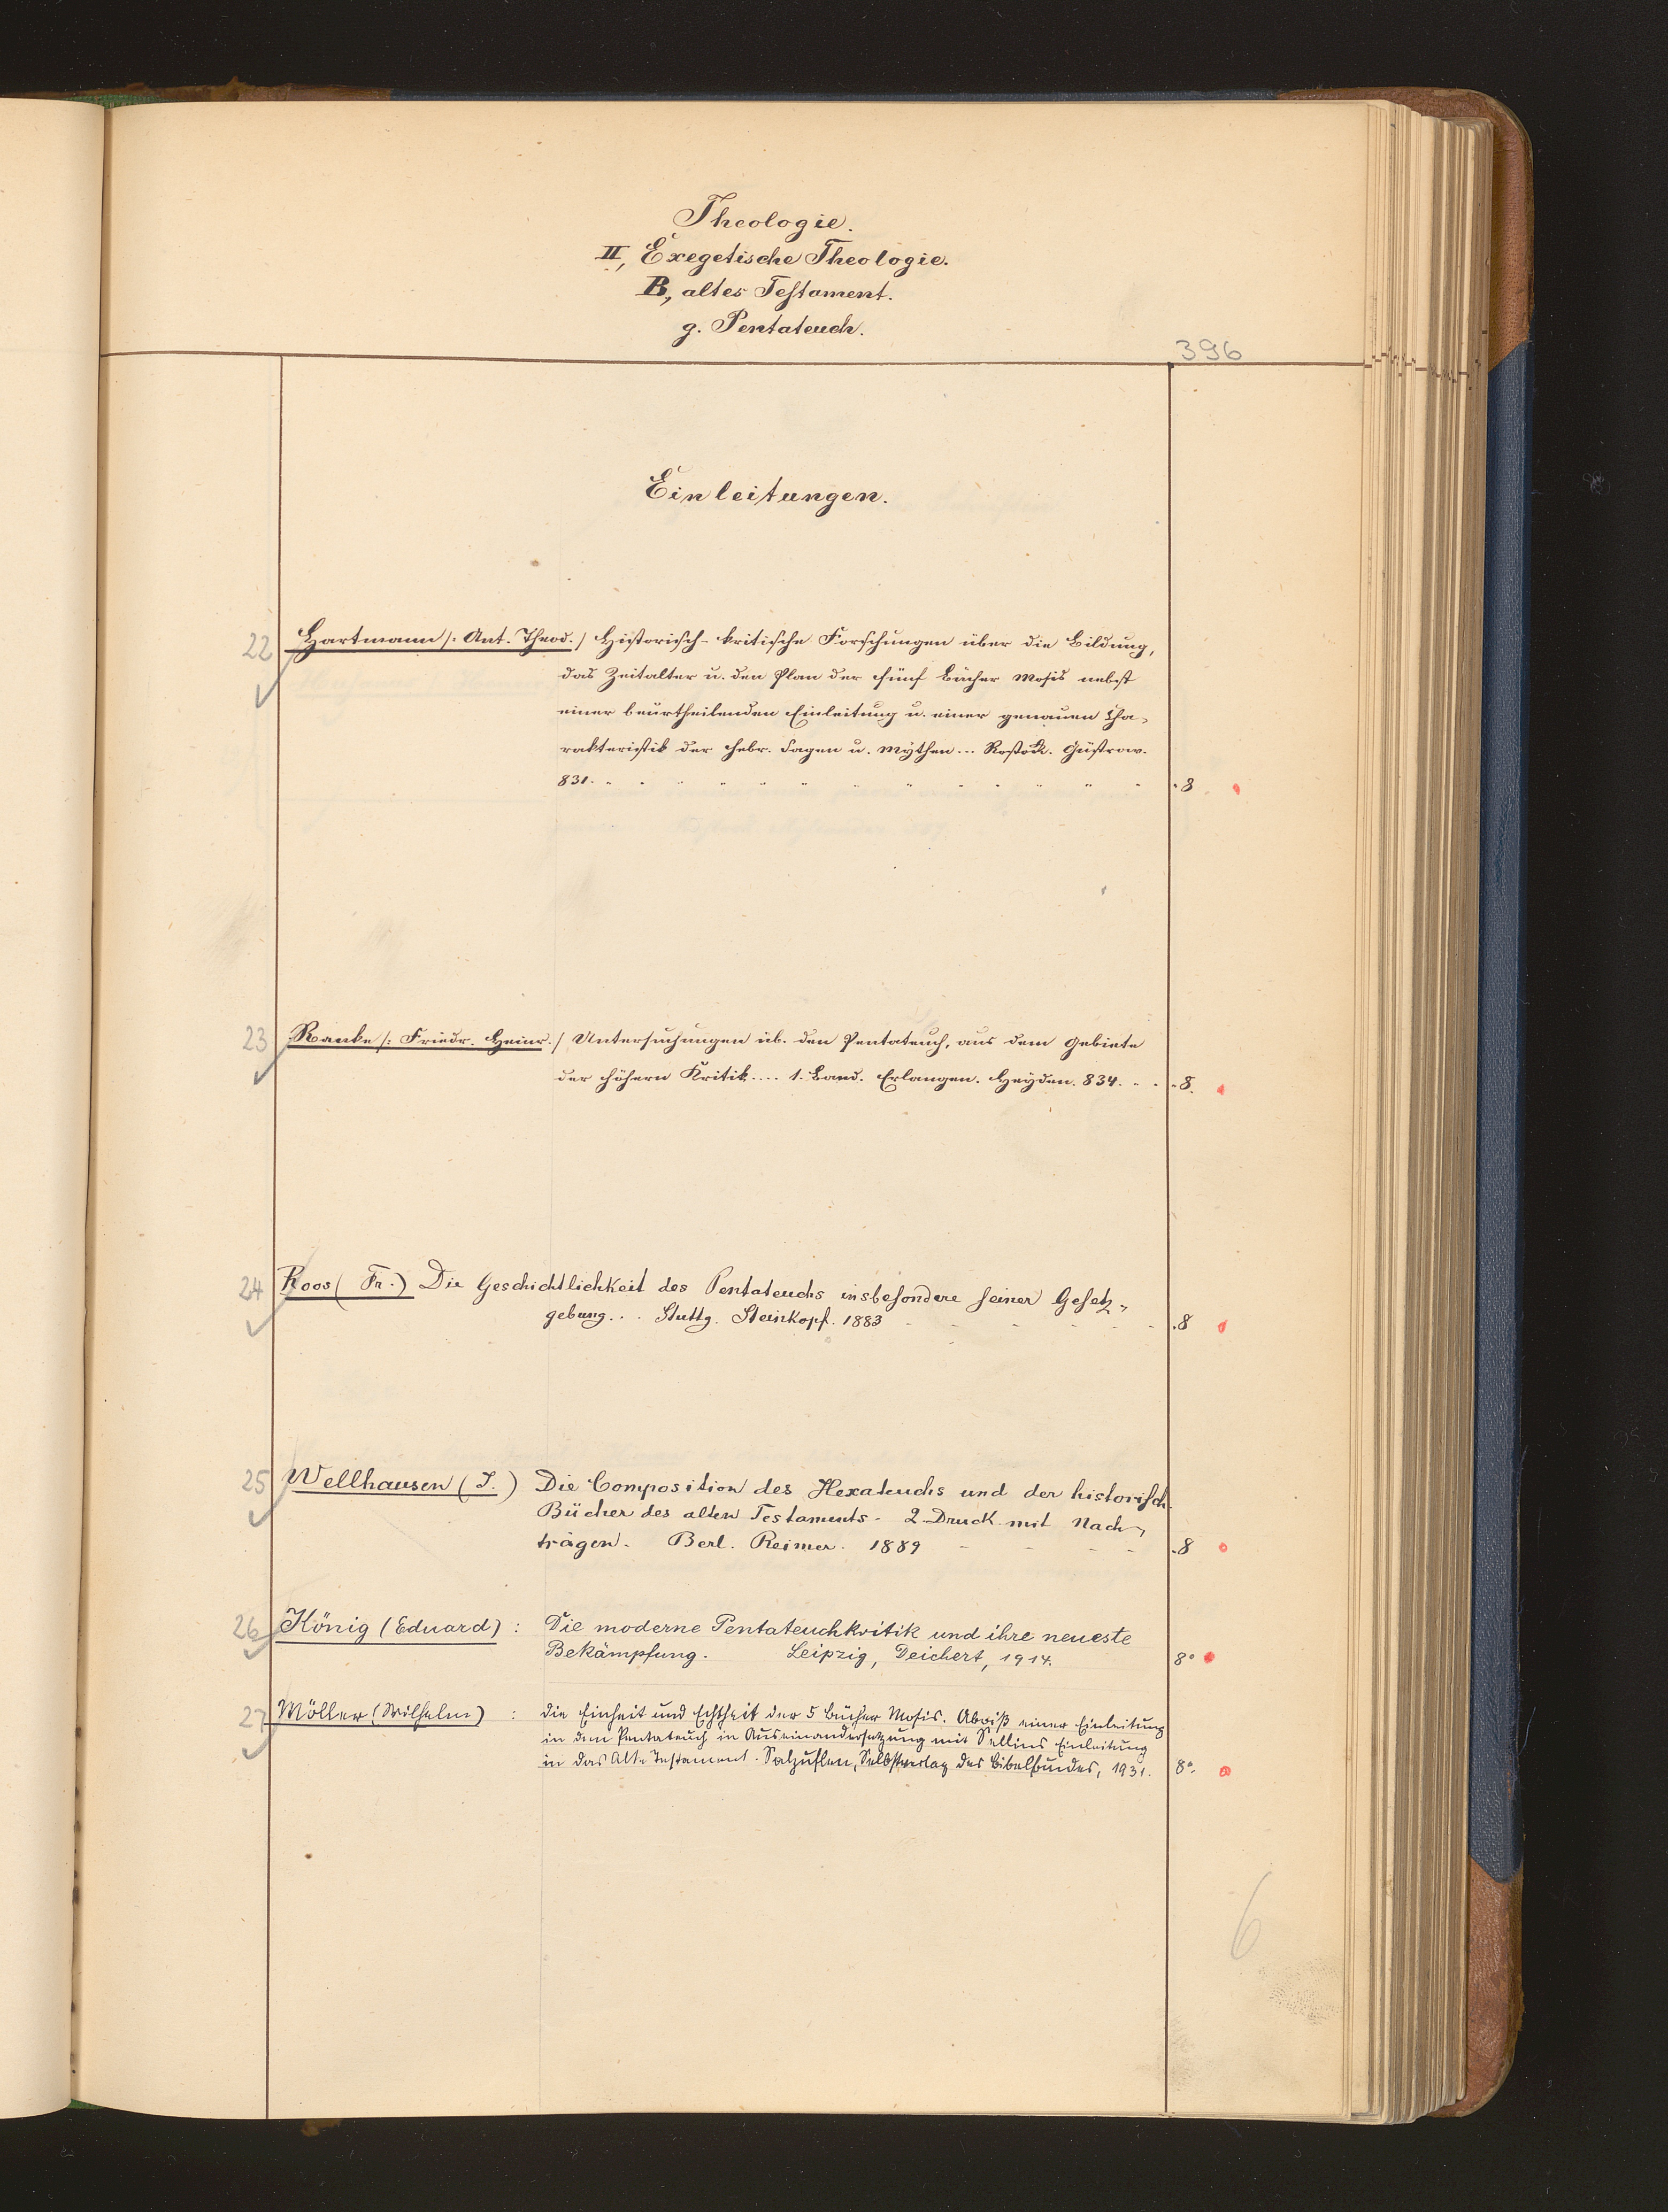 Theologie.
II, Exegetische Theologie.
B, altes Testament.
g. Pentateuch.
396
Einleitungen.
22 Hartmann /: Ant. Theod. / Historisch-kritische Forschungen über die Bildung,
das Zeitalter u. den Plan der fünf Bücher Mosis nebst
einer beurtheilenden Einleitung u. einer genauen Cha-
rakteristik der hebr. Sagen u. Mythen... Rostock. Güstrow.
831. 8
23 Ranke /: Friedr. Heinr. / Untersuchungen üb. den Pentateuch, aus dem Gebiete
der höhern Kritik.... 1. Band. Erlangen. Heyder. 834. 8.
24 Roos (Fr.) Die Geschichtlichkeit des Pentateuchs insbesondere seiner Gesetz-
gebung... Stuttg. Steinkopf. 1883 8
25 Wellhausen (J.) Die Composition des Hexateuchs und der historisch.
Bücher des alten Testaments. 2. Druck mit Nach-
trägen. Berl. Reimer. 1889 8
26 König (Eduard) : Die moderne Pentateuchkritik und ihre neueste
Bekämpfung. Leipzig, Deichert, 1914. 8°
27 Möller (Wilhelm) : Die Einheit und Echtheit der 5 Bücher Mosis. Abriß einer Einleitung
in den Pentateuch in Auseinandersetzung mit Sellins Einleitung
in das Alte Testament. Salzuflen, Selbstverlag des Bibelbundes, 1931. 8°.
6